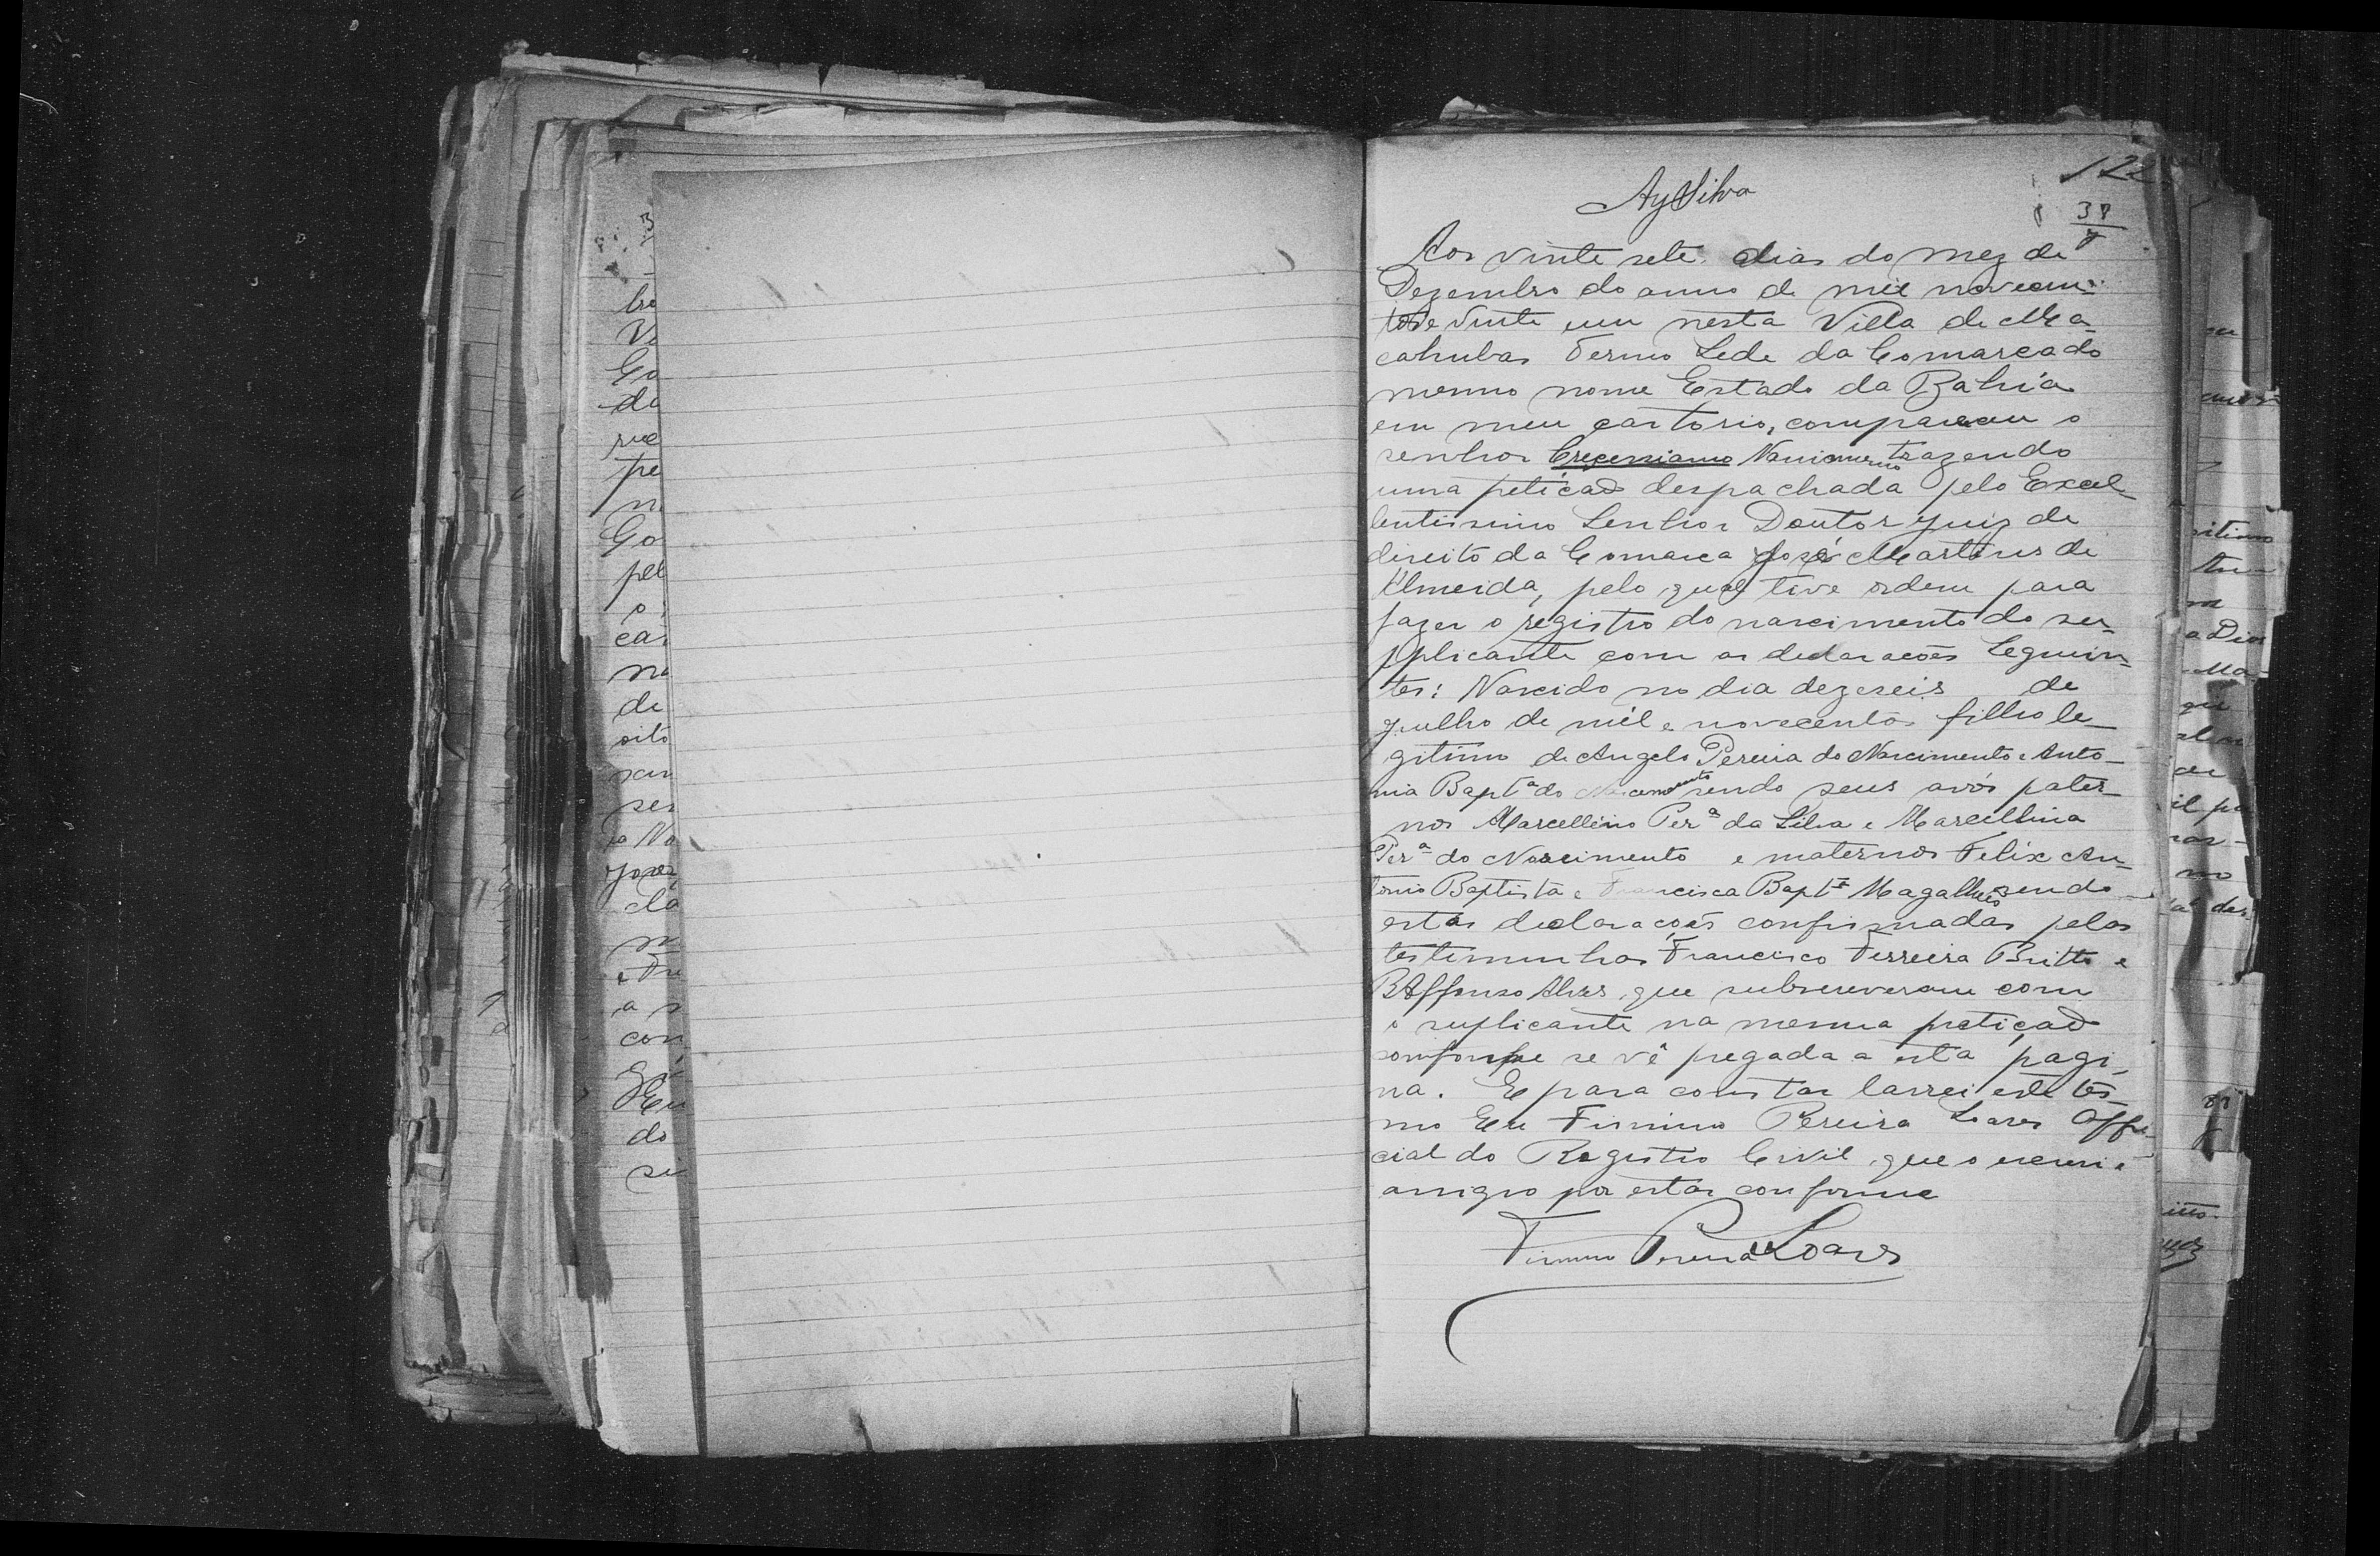 122
AySilva
38
Aos vinte sete dias do mez de
Dezembro do anno de mil novecen-
tos e vinte um nesta Villa de Ma-
cahubas Termo Sede da Comarca do
mesmo nome Estado da Bahia
em meu cartorio, compareceu o
senhor Crescenciano Nascimento trazendo
uma petição despachada pelo Excel-
lentissimo Senhor Doutor Juiz de
direito da Comarca José Martins de
Almeida, pelo qual tive ordem para
fazer o registro do nascimento do su-
pplicante com as declarações Seguin-
tes: Nascido no dia dezeseis de
Julho de mil e novecentos filho le-
gitimo de Angelo Pereira do Nascimento e Anto-
nia Bapt.ª do Nascimento sendo seus avós pater-
nos Marcellino Per.ª da Silva e Marcellina
Per.ª do Nascimento e maternos Felix An-
tonio Baptista e Francisca Bapt.ª Magalhães sendo
estas declarações confirmadas pelas
testimunhas Francisco Ferreira Britto e
Affonso Alves que subscreveram com
o suplicante na mesma petição
comforme se vê pregada a esta pagi-
na. E para constar lavrei este ter-
mo Eu Firmino Pereira Soares Offi-
cial do Registro Civil que o escrevi e
assigno por estar conforme
Firmino Pereira Soares